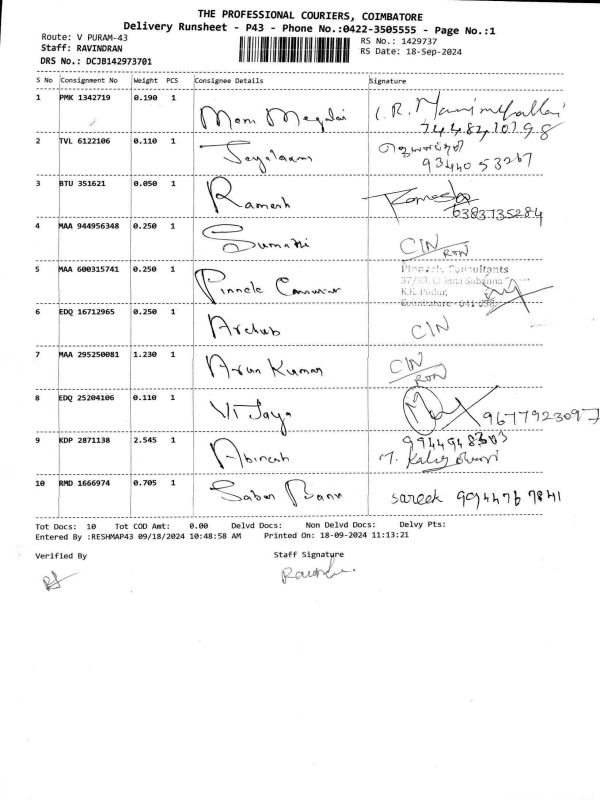 THE PROFESSIONAL COURIERS, COIMBATORE
Delivery Runsheet - P43 - Phone No.:0422-3505555 - Page No.:1
Route: V PURAM-43
RS No.: 1429737
Staff: RAVINDRAN
RS Date: 18-Sep-2024
DRS No.: DCJB142973701
S No Consignment No Weight PCS Consignee Details Signature
1 PMK 1342719 0.190 1 Mani Megalai
7448410798
2 TVL 6122106 0.110 1 Jeyalaxmi
93440 53267
3 BTU 351621 0.050 1 Ramesh Ramesh
6383735284
4 MAA 944956348 0.250 1 Sumathi CIN
RON
5 MAA 600315741 0.250 1 Pinnacle Consultants
37/33,
K.K. Pudur,
Coimbatore - 641 038.
6 EDQ 16712965 0.250 1 CIN
7 MAA 295250081 1.230 1 Arun Kumar CIN
RON
8 EDQ 25204106 0.110 1 Vijaya 9677923097
9 KDP 2871138 2.545 1 Abinesh 9944948303
10 RMD 1666974 0.705 1 Saban Banu sareek 9944767841
Tot Docs: 10 Tot COD Amt: 0.00 Delvd Docs: Non Delvd Docs: Delvy Pts:
Entered By :RESHMAP43 09/18/2024 10:48:58 AM Printed On: 18-09-2024 11:13:21
Verified By Staff Signature